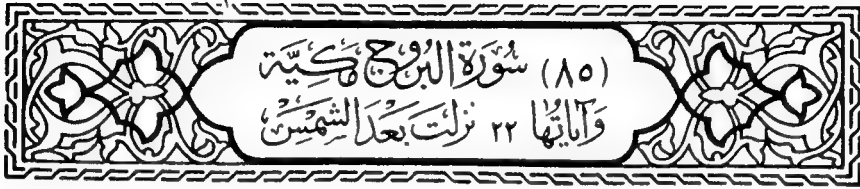 (٨٥) سُورَةُ البُرُوجِ مَكِيَّة
وَآيَاتُهَا ٢٢ نَزَلَتْ بَعْدَ الشَّمْسِ